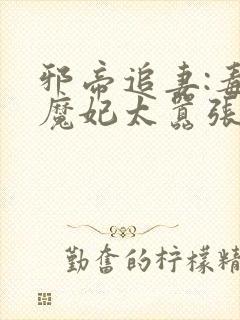 邪帝追妻:毒
魔妃太嚣张
勤奋的柠檬精